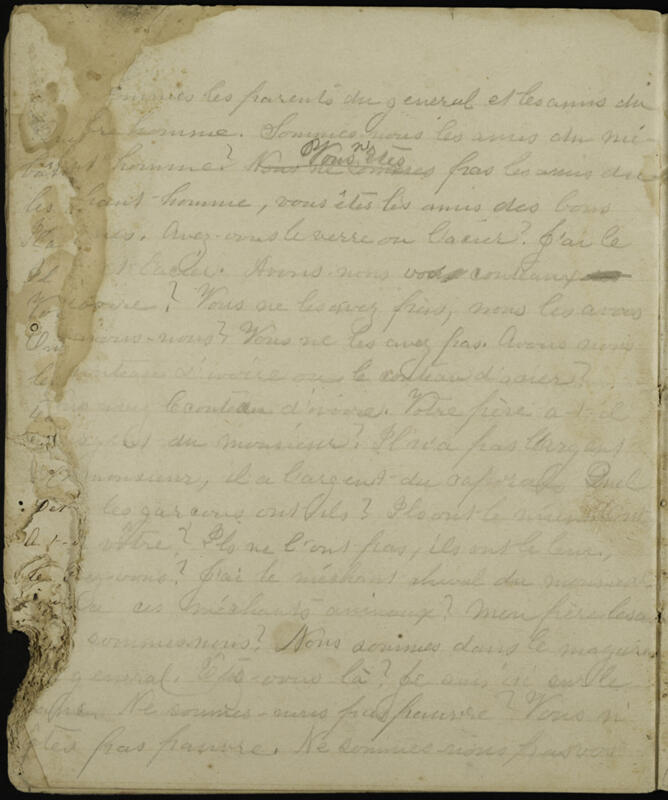 sommes les parents du general et les amis du
homme. Sommes-nous les amis du mé-
chant homme? Nous ne sommes Vous n'êtes pas les amis du
méchant-homme, vous êtes les amis des bons
hommes. Avez-vous le verre ou l'acier? J'ai le
l'acier. Avons-nous vos couteaux
d'ivoire? Vous ne les avez pas, nous les avons
avons-nous? Vous ne les avez pas. Avons nous
le couteau d'ivoire ou le couteau d'acier?
avez le couteau d'ivoire. Votre père a-t-il
l'argent du monsieur? Il n'a pas l'argent
monsieur, il a l'argent du caporal. Quel
les garçons ont ils? Ils ont le
vôtre? Ils ne l'ont pas, ils ont le leur,
avez-vous? J'ai le méchant cheval du monsieur
ces méchants animaux? mon père les a
sommes nous? Nous sommes dans le magasin
general. Êtes-vous là? Je suis ici sur le
Ne sommes-nous pas pauvre? Vous n'
êtes pas pauvre. Ne sommes-nous pas vos